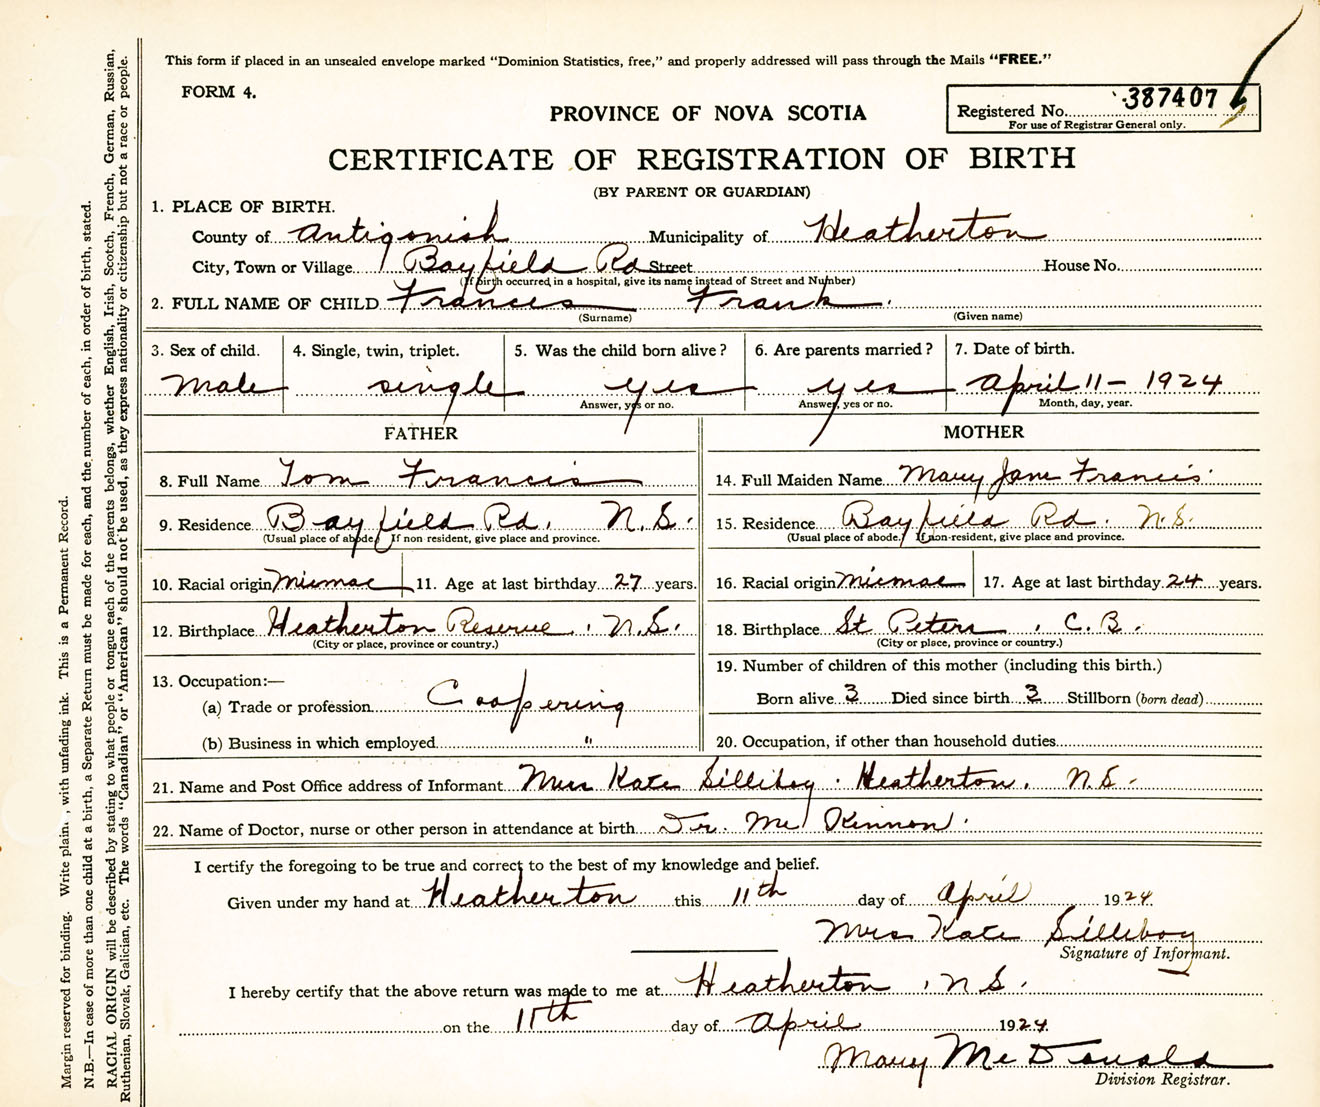 This form if placed in an unsealed envelope marked “Dominion Statistics, free,” and properly addressed will pass through the Mails “FREE.”
FORM 4.
Registered No. 387407
For use of Registrar General only.
PROVINCE OF NOVA SCOTIA
CERTIFICATE OF REGISTRATION OF BIRTH
(BY PARENT OR GUARDIAN)
1. PLACE OF BIRTH.
County of Antigonish Municipality of Heatherton
City, Town or Village Bayfield Rd Street House No.
(If birth occurred in a hospital, give its name instead of Street and Number)
2. FULL NAME OF CHILD Francis Frank.
(Surname) (Given name)
3. Sex of child. 4. Single, twin, triplet. 5. Was the child born alive? 6. Are parents married? 7. Date of birth.
Male single yes yes April 11 – 1924
Answer, yes or no. Answer, yes or no. Month, day, year.
FATHER MOTHER
8. Full Name Tom Francis 14. Full Maiden Name Mary Jane Francis
9. Residence Bayfield Rd. N.S. 15. Residence Bayfield Rd. N.S.
(Usual place of abode.) If non-resident, give place and province. (Usual place of abode.) If non-resident, give place and province.
10. Racial origin Micmac 11. Age at last birthday 27 years. 16. Racial origin Micmac 17. Age at last birthday 24 years.
12. Birthplace Heatherton Reserve, N.S. 18. Birthplace St Peters, C.B.
(City or place, province or country.) (City or place, province or country.)
13. Occupation:— 19. Number of children of this mother (including this birth.)
(a) Trade or profession Coopering Born alive 3 Died since birth 3 Stillborn (born dead)
(b) Business in which employed " 20. Occupation, if other than household duties
21. Name and Post Office address of Informant Mrs Kate Silliboy. Heatherton, N.S.
22. Name of Doctor, nurse or other person in attendance at birth Dr. McKinnon.
I certify the foregoing to be true and correct to the best of my knowledge and belief.
Given under my hand at Heatherton this 11th day of April 1924.
Mrs Kate Silleboy
Signature of Informant.
I hereby certify that the above return was made to me at Heatherton, N S.
on the 11th day of April 1924.
Mary McDonald
Division Registrar.
Margin reserved for binding. Write plain , with unfading ink. This is a Permanent Record.
N.B.—In case of more than one child at a birth, a Separate Return must be made for each, and the number of each, in order of birth, stated.
RACIAL ORIGIN will be described by stating to what people or tongue each of the parents belongs, whether English, Irish, Scotch, French, German, Russian,
Ruthenian, Slovak, Galician, etc. The words “Canadian” or “American” should not be used, as they express nationality or citizenship but not a race or people.